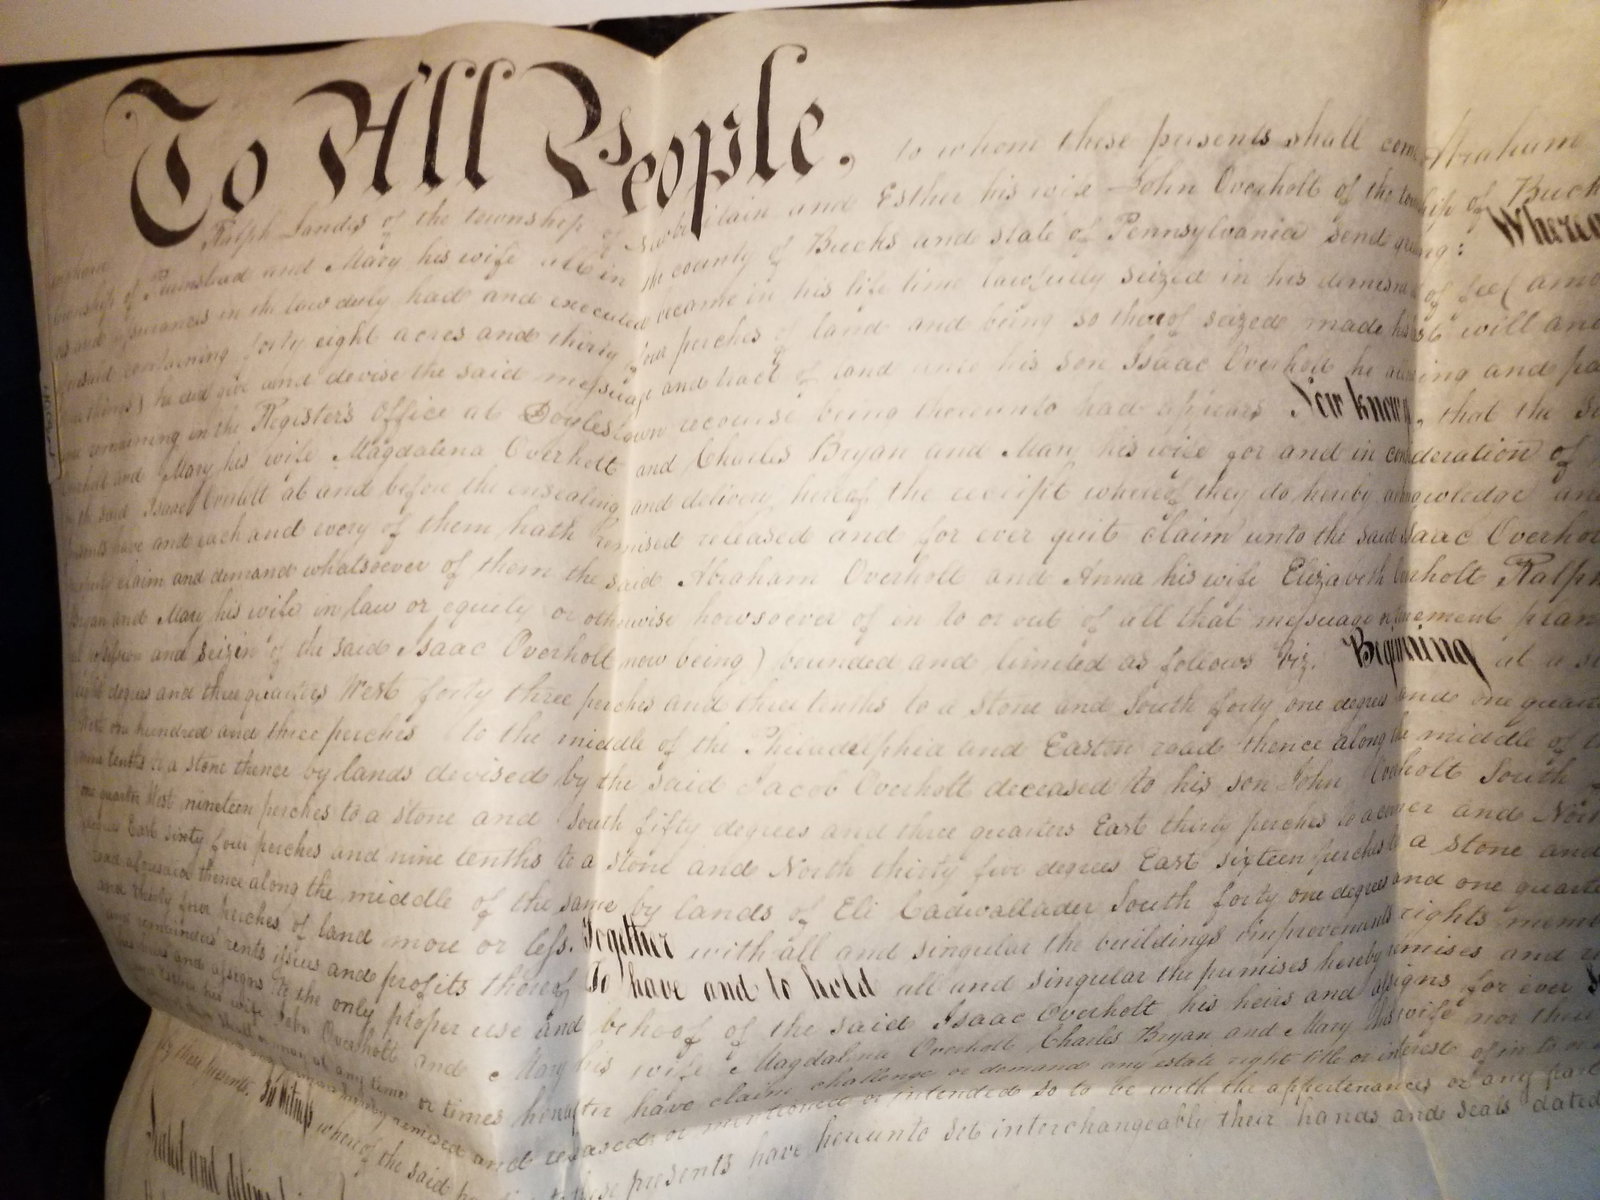 To All People, to whom these presents shall come Abraham
Ralph Landes of the township of and Esther his wife John Overholt of the township of Buck
township of Plumstead and Mary his wife all in the county of Bucks and state of Pennsylvania send greeting: Wherea
and assurances in the law duly had and executed became in his life time lawfully seized in his demesne of fee (amo
containing forty eight acres and thirty four perches of land and being so thereof seized made his last will and
things) he did give and devise the said messuage and tract of land unto his son Isaac Overholt he and pa
remaining in the Register's Office at Doylestown recourse being thereunto had appears Now know ye, that the s
and Mary his wife Magdalena Overholt and Charles Bryan and Mary his wife for and in consideration of
the said Isaac Overholt at and before the ensealing and delivery hereof the receipt whereof they do hereby acknowledge and
have and each and every of them hath Remised released and for ever quit claim unto the said Isaac Overhol
claim and demand whatsoever of them the said Abraham Overholt and Anna his wife Elizabeth Overholt Ralph
Bryan and Mary his wife in law or equity or otherwise howsoever of in to or out of all that messuage tenement plan
possession and seizin of the said Isaac Overholt now being) bounded and limited as follows Viz. Beginning at a st
degrees and three quarters West forty three perches and three tenths to a Stone and South forty one degrees and one quart
one hundred and three perches to the middle of the Philadelphia and Easton road thence along the middle of t
nine tenths to a stone thence by lands devised by the said Jacob Overholt deceased to his son John Overholt South
one quarter West nineteen perches to a stone and South fifty degrees and three quarters East thirty perches to a corner and Nor
degrees East sixty four perches and nine tenths to a stone and North thirty five degrees East sixteen perches to a stone and
road aforesaid thence along the middle of the same by lands of Eli Cadwallader South forty one degrees and one quarte
and thirty four perches of land more or less. Together with all and singular the buildings improvements rights mem
and remainders rents issues and profits thereof To have and to hold all and singular the premises hereby remises and r
his heirs and assigns to the only proper use and behoof of the said Isaac Overholt his heirs and assigns for ever
his wife John Overholt and Mary his wife Magdalena Overholt Charles Bryan and Mary his wife nor their
shall or may at any time or times hereafter have claim challenge or demand any estate right title or interest of in to or
hereby remised and released or mentioned or intended so to be with the appurtenances or any part
by these presents. In Witness whereof the said to these presents have hereunto set interchangeably their hands and seals dated
Sealed and deliver